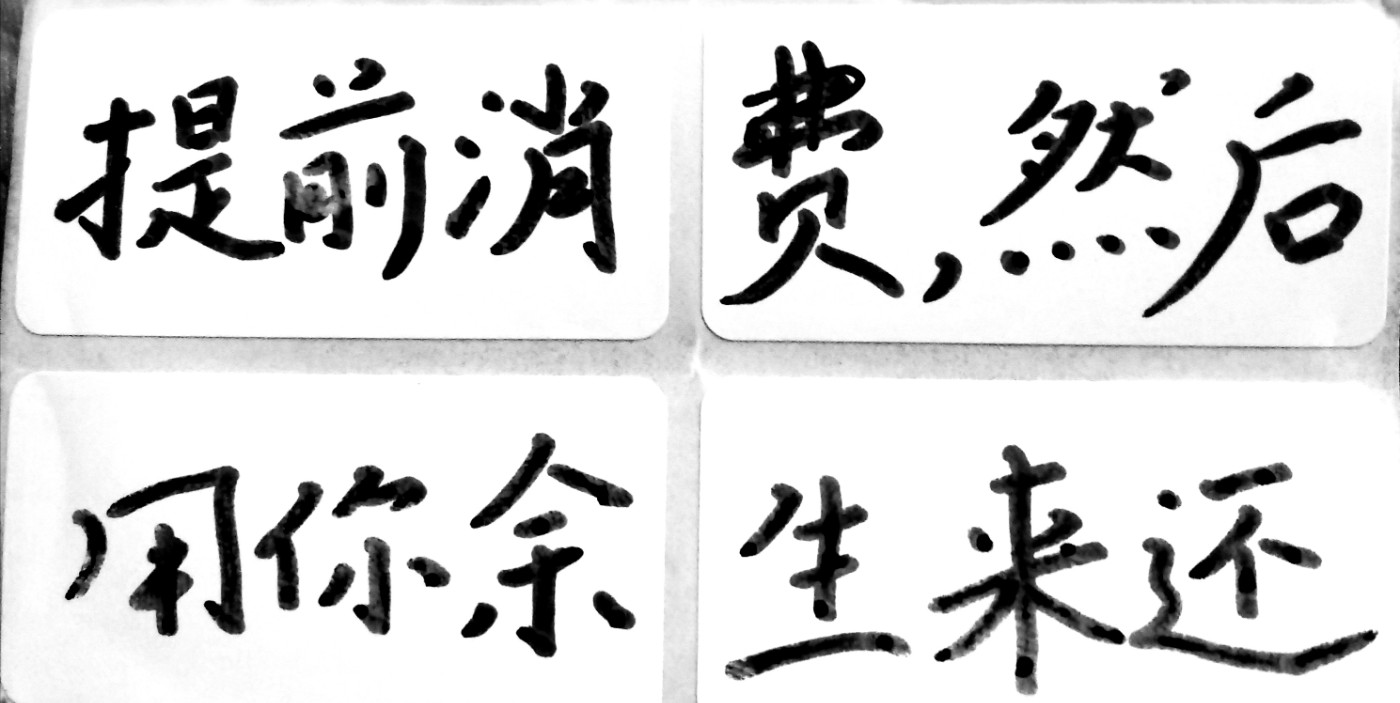 提前消费，然后
用你余生来还